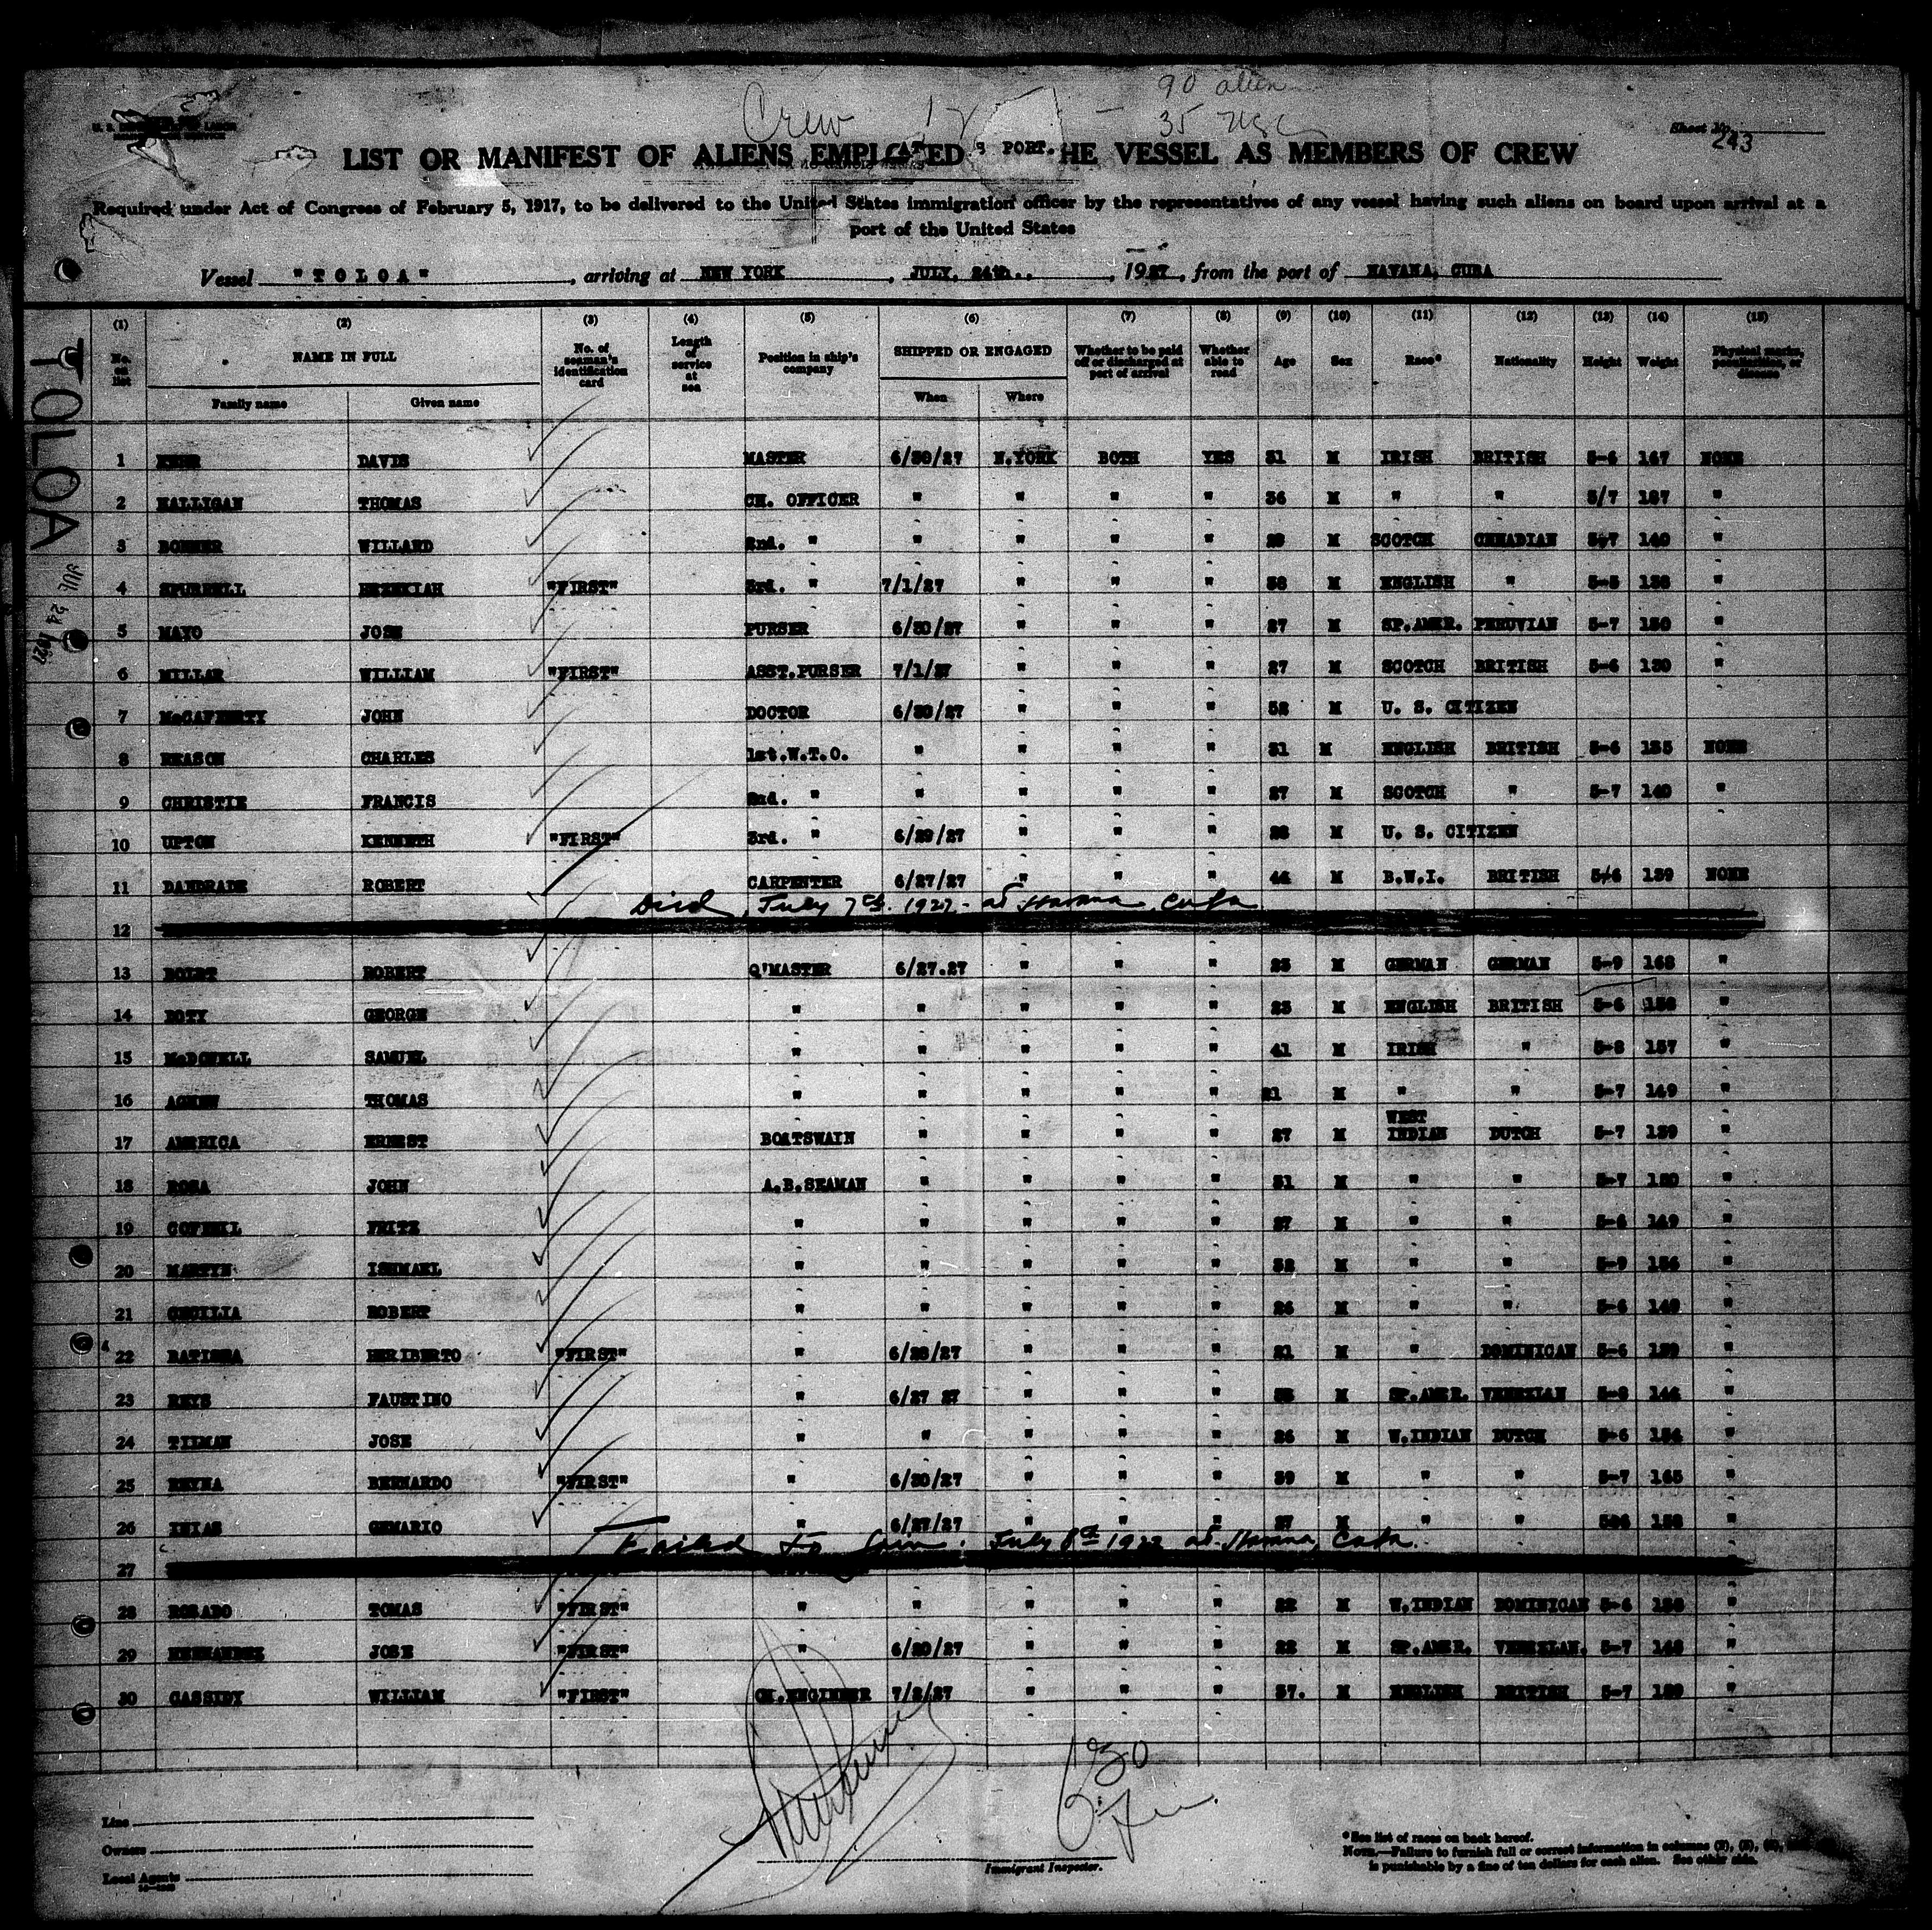 Crew
90 alien
35 USC
Sheet No.
243
LIST OR MANIFEST OF ALIENS EMPL ED HE VESSEL AS MEMBERS OF CREW
PORT.
Required under Act of Congress of February 5, 1917, to be delivered to the United States immigration officer by the representatives of any vessel having such aliens on board upon arrival at a
port of the United States
Vessel "TOLOA", arriving at NEW YORK, JULY, 24th., 1927, from the port of HAVANA, CUBA
TOLOA
JUL 24 1927
(1) (2) (3) (4) (5) (6) (7) (8) (9) (10) (11) (12) (13) (14) (15)
No. on list NAME IN FULL No. of seaman's identification card Length of service at sea Position in ship's company SHIPPED OR ENGAGED Whether to be paid off or discharged at port of arrival Whether able to read Age Sex Race* Nationality Height Weight Physical marks, peculiarities, or disease
Family name Given name When Where
1 DAVIS MASTER 6/30/27 N.YORK BOTH YES 51 M IRISH BRITISH 5-6 167 NONE
2 HALLIGAN THOMAS CH. OFFICER " " " " 36 M " " 5/7 187 "
3 WILLARD 2nd. " " " " " M SCOTCH CANADIAN 5-7 140 "
4 SPURRELL HEZEKIAH "FIRST" 3rd. " 7/1/27 " " " 38 M ENGLISH " 5-5 138 "
5 MAYO JOSE PURSER 6/30/27 " " " 27 M SP.AMER. PERUVIAN 5-7 150 "
6 MILLAR WILLIAM "FIRST" ASST.PURSER 7/1/27 " " " 27 M SCOTCH BRITISH 5-6 130 "
7 McCAFFERTY JOHN DOCTOR 6/30/27 " " " 52 M U. S. CITIZEN
8 REASON CHARLES 1st.W.T.O. " " " " 31 M ENGLISH BRITISH 5-6 135 NONE
9 CHRISTIE FRANCIS 2nd. " " " " " 27 M SCOTCH " 5-7 140 "
10 UPTON KENNETH "FIRST" 3rd. " 6/29/27 " " " M U. S. CITIZEN
11 DANDRADE ROBERT CARPENTER 6/27/27 " " " 44 M B.W.I. BRITISH 5-6 139 NONE
Died July 7th. 1927 - at Havana, Cuba
12
13 BOLDT ROBERT Q'MASTER 6/27.27 " " " 25 M GERMAN GERMAN 5-9 168 "
14 DOTY GEORGE " " " " " 25 M ENGLISH BRITISH 5-6 "
15 McDOWELL SAMUEL " " " " " 41 M IRISH " 5-8 157 "
16 AGNEW THOMAS " " " " " 21 M " " 5-7 149 "
17 AMERICA ERNEST BOATSWAIN " " " " 27 M WEST INDIAN DUTCH 5-7 139 "
18 ROSA JOHN A.B.SEAMAN " " " " 31 M " " 5-7 "
19 FRITZ " " " " " 27 M " " 5-6 149 "
20 MARTYN ISHMAEL " " " " " 32 M " " 5-9 156 "
21 CECILIA ROBERT " " " " " 26 M " " 5-6 149 "
22 BATISTA HERIBERTO "FIRST" " 6/28/27 " " " 21 M " DOMINICAN 5-6 "
23 REYS FAUSTINO " 6/27 27 " " " M SP.AMER. VENEZLAN 5-8 144 "
24 TILMAN JOSE " " " " " 26 M W.INDIAN DUTCH 5-6 154 "
25 REYNA BERNARDO "FIRST" " 6/30/27 " " " 39 M " " 5-7 165 "
26 GEMARIO " 6/27/27 " " " 27 M " " 158 "
Failed to Join. July 8th 1927 at Havana, Cuba.
27
28 ROSADO TOMAS "FIRST" " " " " " 22 M W.INDIAN DOMINICAN 5-6 "
29 HERNANDEZ JOSE "FIRST" " 6/30/27 " " " 22 M SP.AMER. VENEZLAN. 5-7 148 "
30 CASSIDY WILLIAM "FIRST" CH.ENGINEER 7/2/27 " " " 37. M ENGLISH BRITISH 5-7 "
Line
Owners
Local Agents
Immigrant Inspector.
*See list of races on back hereof.
NOTE.—Failure to furnish full or correct information in columns (2), (5),
is punishable by a fine of ten dollars for each alien. See other side.